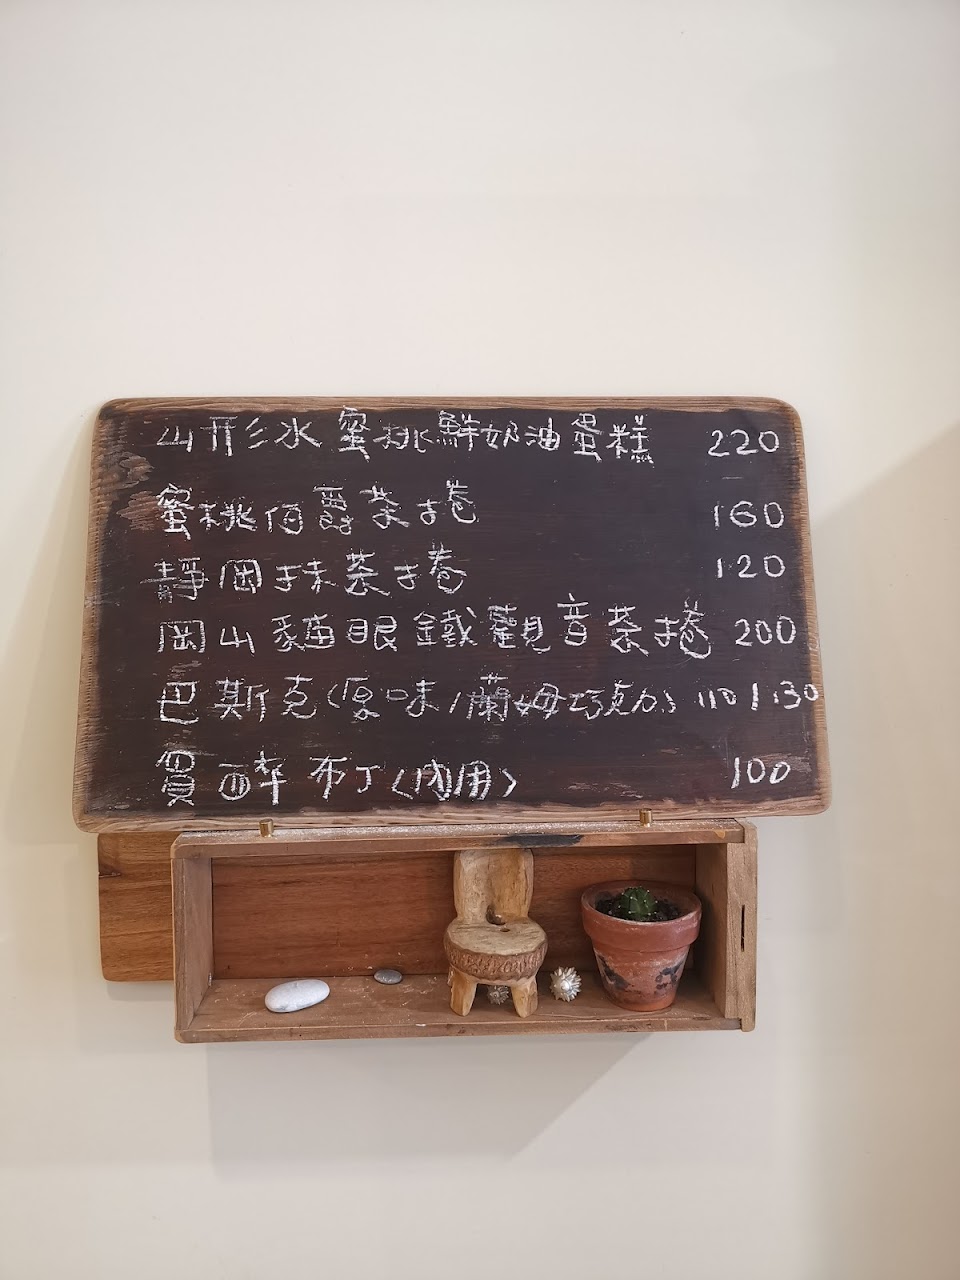 山形水蜜桃鮮奶油蛋糕 220
蜜桃伯爵茶捲 160
靜岡抹茶捲 120
岡山貓眼鐵觀音茶捲 200
巴斯克(原味/蘭姆巧克力) 110/130
費南雪 布丁(內用) 100